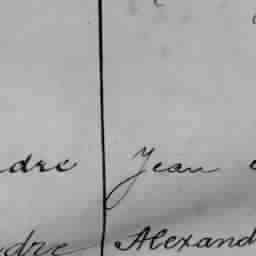 dre Jean
dre Alexand